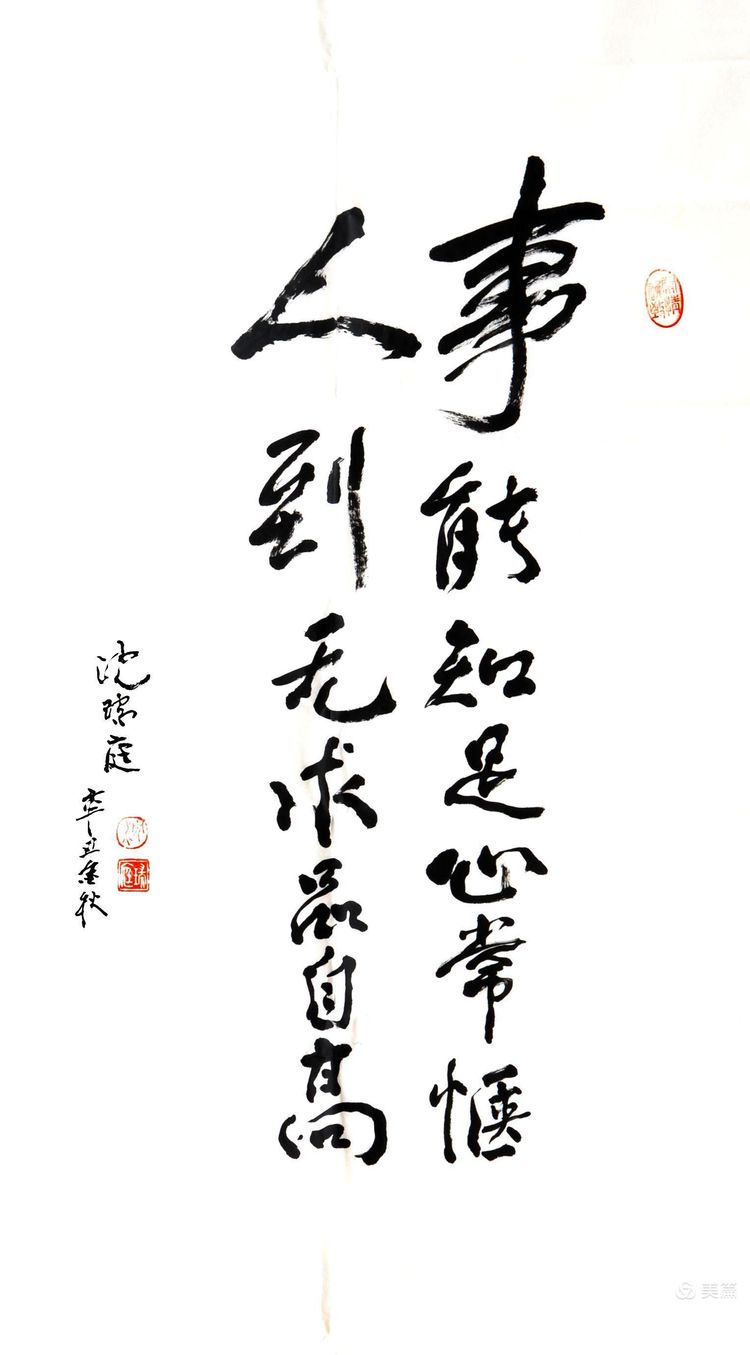 事能知足心常惬
人到无求品自高
沈瑞庭
辛丑金秋
美篇